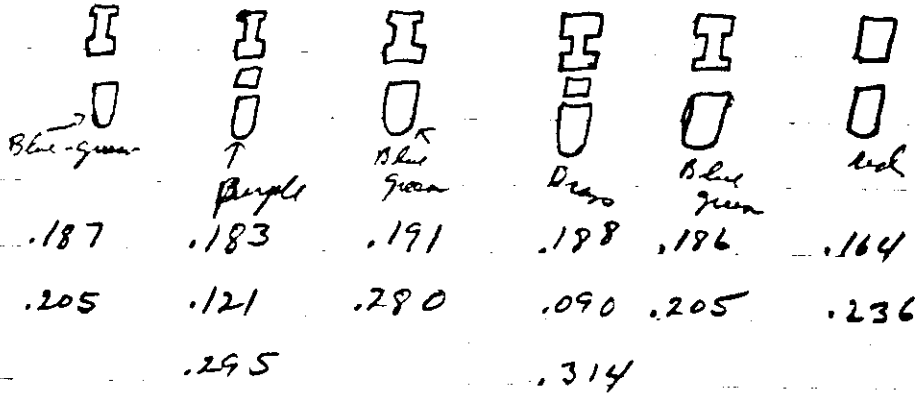 Blue-green
Purple
Blue green
Blue green
red
.187 .183 .191 .188 .186 .164
.205 .121 .280 .090 .205 .236
.295 .314